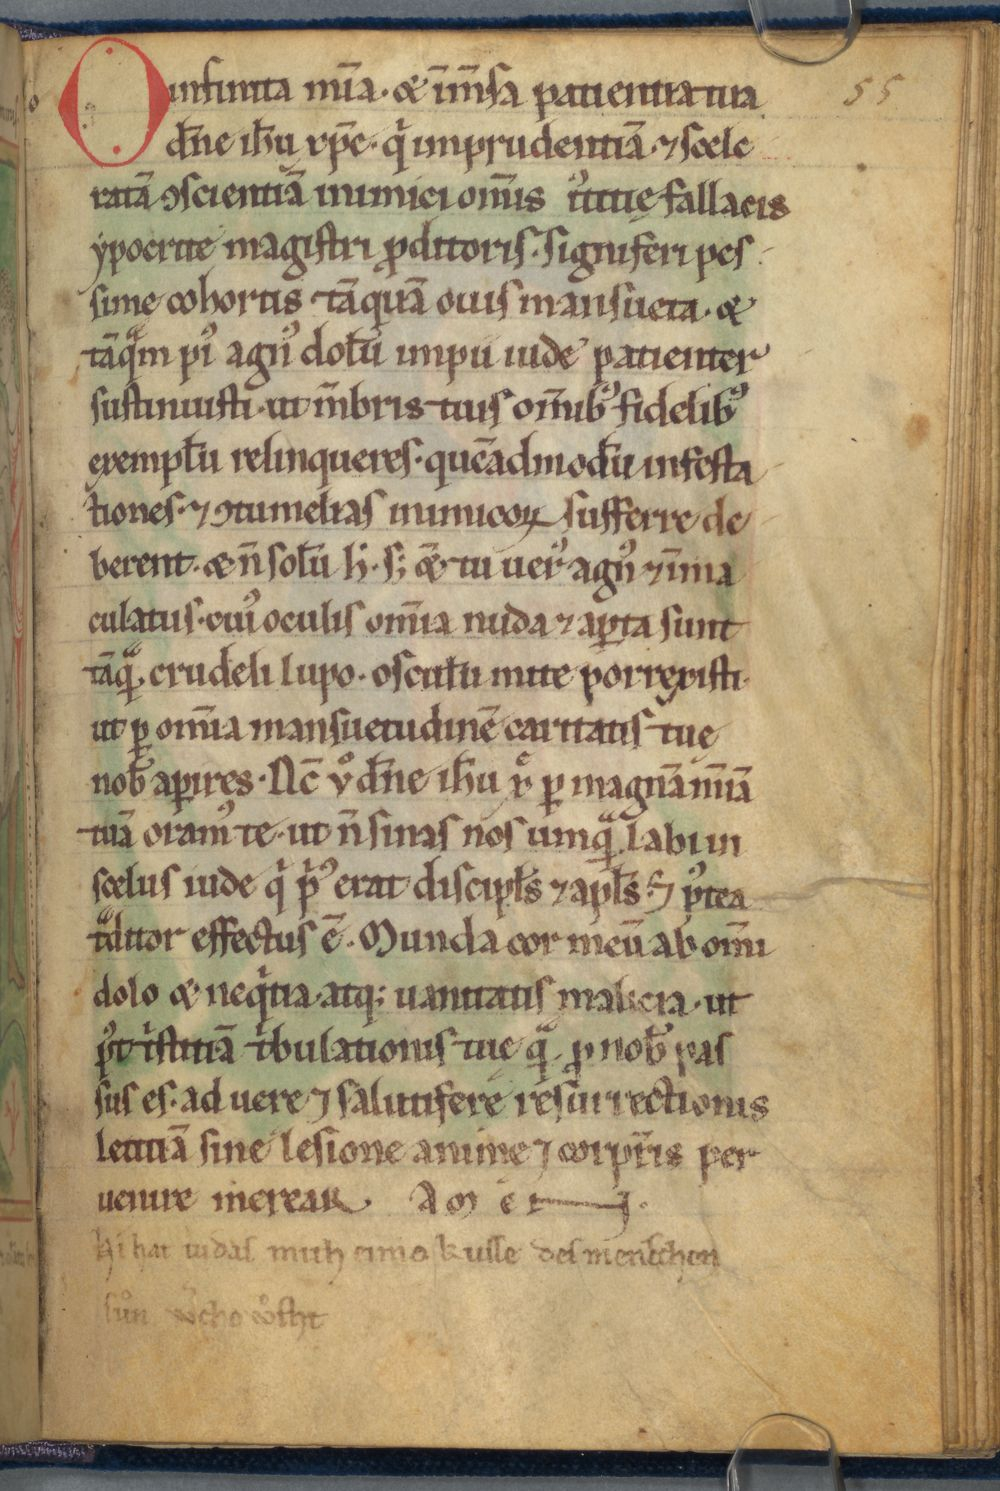 O infinita mīa. & īm̄sa patientia tua
dn̄e ih̄u xp̄e. qͥ imprudentiā ⁊ scele
ratā ꝯscientiā inimici om̄is ư̄tutis fallacis
ypocrite magistri ꝓditoris. signiferi pes
sime cohortis tāquā ouis mansueta. &
tāqᷓm piꝰ agnꝰ dolū impii iude patienter
sustinuisti. ut m̄bris tuis om̄ibꝰ fidelibꝰ
exemplū relinqueres. quēadmodū infesta
tiones. ⁊ ꝯtumelias inimicoꝝ sufferre de
berent. & n̄ solū h̄. s; & tu uerꝰ agnꝰ ⁊ īma
culatus. cuiꝰ oculis om̄ia nuda ⁊ aꝑta sunt
tāqᷓ. crudeli lupo. osculū mite porrexisti.
ut ꝑ om̄ia mansuetudinē caritatis tue
nob̄ aꝑires. Nc̄ ỏ dn̄e ih̄u x̄ ꝑ magnā mīā
tuā oramꝰ te. ut n̄ sinas nos umqᷓ. labi in
scelus iude qͥ pͥꝰ erat discipl̄s ⁊ apl̄s. ⁊ pꝰtea
tᷓditor effectus ē. Munda cor meū ab om̄i
dolo & neqͥtia. atq; uanitatis malicia. ut
pꝰt tͥstitiā tͥbulationis tue qᷓ. ꝓ nob̄ pas
sus es. ad uere ⁊ salutifere resurrectionis
letitiā sine lesione anime ⁊ corpīs per
uenire merear. AMEN.
Hi hat iudas mith eimo kusse des menschen
sůn
55